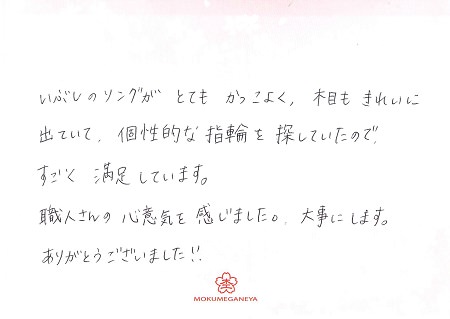 いぶしのリングが とても かっこよく、木目も きれいに
出ていて、個性的な指輪を 探していたので、
すごく 満足しています。
職人さんの 心意気を 感じました。大事にします。
ありがとうございました!!
杢
MOKUMEGANEYA